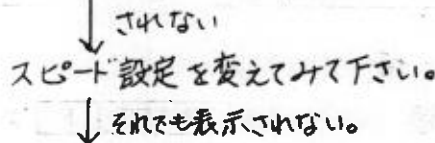 されない
スピード設定を変えてみて下さい。
それでも表示されない。